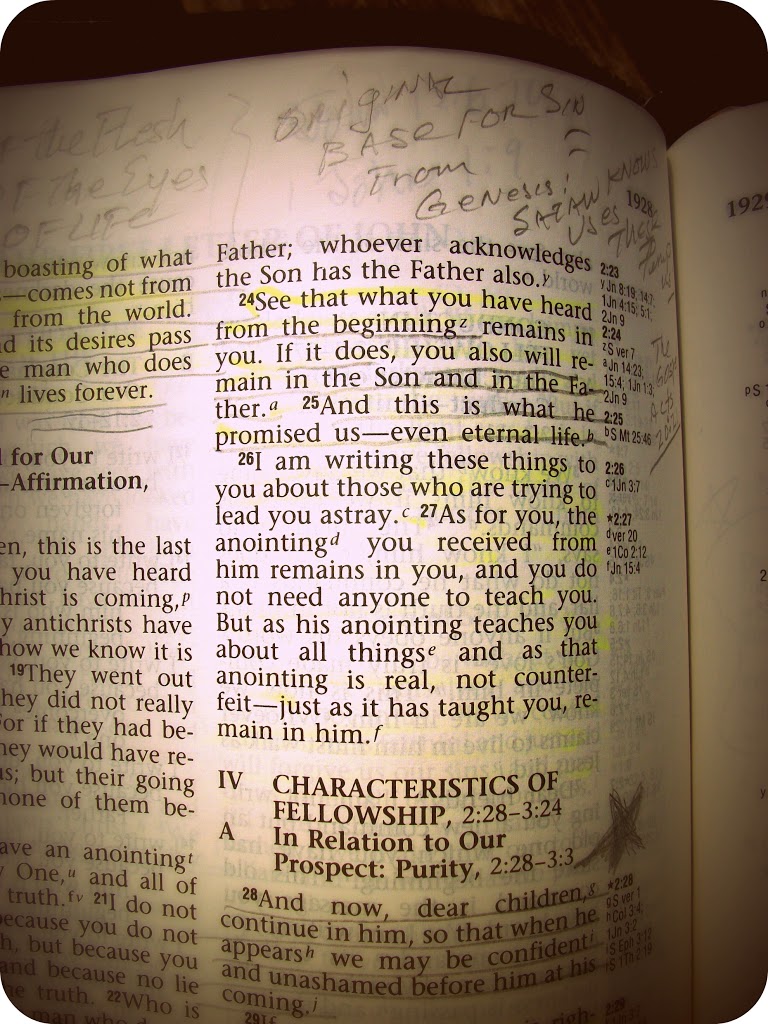 of the Flesh
OF The Eyes
OF LIFE
ORIGINAL
BASE FOR SIN
From
GENESIS!
SATAN KNOWS
USES These
1928
boasting of what
—comes not from
from the world.
d its desires pass
e man who does
n lives forever.
for Our
–Affirmation,
en, this is the last
you have heard
hrist is coming,p
y antichrists have
how we know it is
19They went out
hey did not really
For if they had be-
hey would have re-
us; but their going
none of them be-
ave an anointingt
One,u and all of
truth.fv 21I do not
because you do not
h, but because you
and because no lie
e truth. 22Who is
man who
Father; whoever acknowledges
the Son has the Father also.y
24See that what you have heard
from the beginningz remains in
you. If it does, you also will re-
main in the Son and in the Fa-
ther.a 25And this is what he
promised us—even eternal life.b
26I am writing these things to
you about those who are trying to
lead you astray.c 27As for you, the
anointingd you received from
him remains in you, and you do
not need anyone to teach you.
But as his anointing teaches you
about all thingse and as that
anointing is real, not counter-
feit—just as it has taught you, re-
main in him.f
IV CHARACTERISTICS OF
FELLOWSHIP, 2:28–3:24
A In Relation to Our
Prospect: Purity, 2:28–3:3
28And now, dear children,g
continue in him, so that when he
appearsh we may be confidenti
and unashamed before him at his
coming.j
29If
2:23
y Jn 8:19; 14:7;
1Jn 4:15; 5:1;
2Jn 9
2:24
z S ver 7
a Jn 14:23;
15:4; 1Jn 1:3;
2Jn 9
2:25
b S Mt 25:46
2:26
c 1Jn 3:7
★2:27
d ver 20
e 1Co 2:12
f Jn 15:4
★2:28
g S ver 1
h Col 3:4;
1Jn 3:2
i S Eph 3:12
j S 1Th 2:19
2:29
1929